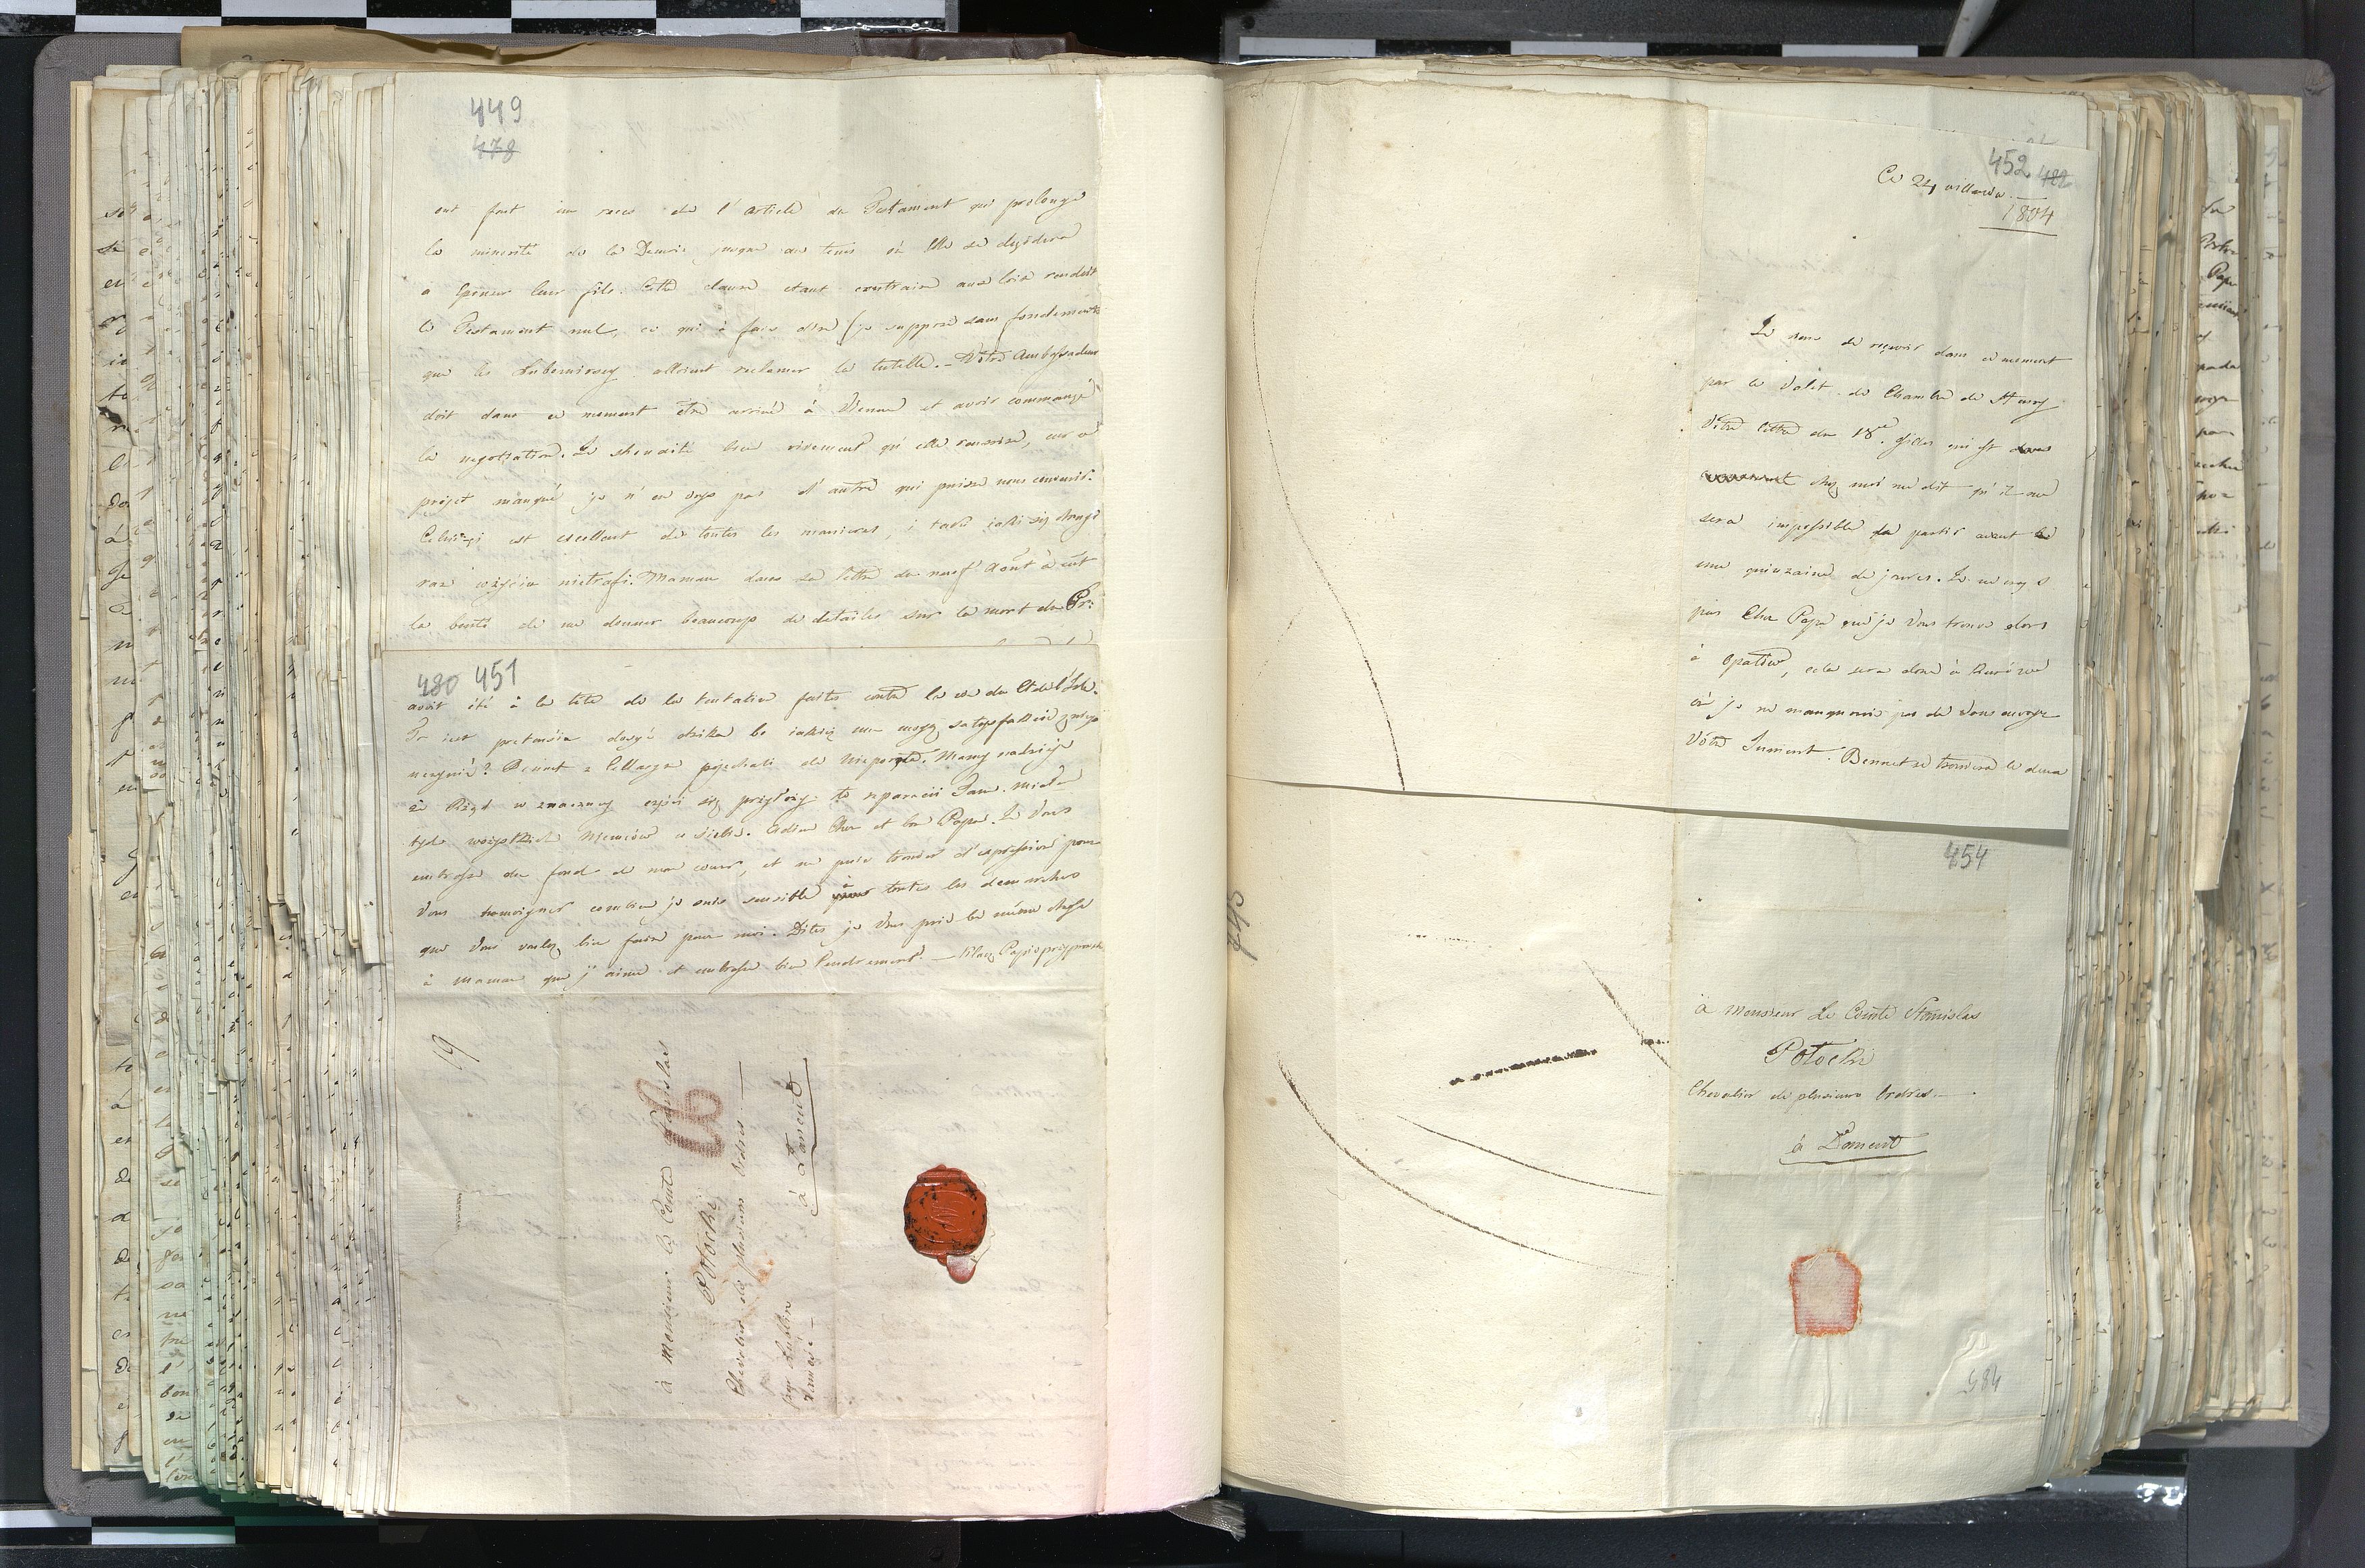 449
478
ont fait un  de l'article du Testament qui prolonge
la minorité de la  jusqu'au tems où Elle se decidera
a Epouser leur fils. Cette clause etant contraire aux loix rendoit
le Testament nul, ce qui à fait dire (je suppose sans fondement
que les Lubomirscy alloient reclamer la tutelle. Vôtre Ambassadeur
doit dans ce moment être arrivé à Vienne et avoir commençé
la negotiation. Je shouaite bien vivement qu'elle reussisse, car ce
projet manqué je n'en voye pas d'autre qui puisse nous convenir.
Celui-ci est excellent de toutes les manieres, i taki się drugi
raz w życiu nietrafi. Maman dans sa lettre du neuf Août à eüt
la bonté de me donner beaucoup de detailes sur la mort du Pr:
480 451
avoit été à la tête de la tentative faites contre la vie du Ct de l'Isle.
To iest pretensia dosyć dzika bo iakąż  mogą satysfakcią z niego
uczynić? Benoit z  pojechali do Nieporęta. Mamy nadzieję
że Rząd w znaczney części się przyłoży to reparacii Tam. miała
tych wszystkich Niemców u siebie. Adieu Cher et bon Papa. Je Vous
embrasse du fond de mon coeur, et ne puis trouver d'expression pour
Vous temoigner combien je suis sensible à toutes les demarches
que Vous voulez bien faire pour moi. Dites je Vous prie la même chose
à Maman que j'aime et embrasse bien tendrement.
19
à Monsieur Le Comte Stanislas
Potocki
Chevalier de plusieurs Ordres
par Lublin
Zamość
à Lancut
452 482
Ce 24 villanów
1804
Je viens de reçevoir dans ce moment
par le Valet de Chambre de Stassy
Vôtre lettre du 18me.  qui est
chez moi me dit qu'il me
sera impossible de partir avant
une quinzaine de jours. Je ne crois
pas Cher Papa que je Vous trouve alors
à Opatów, cela sera donc à Kurów
où je ne manquerai pas de Vous envoyer
Vôtre Jument. Bennet se trouvera le deux
454
à Monsieur Le Comte Stanislas
Potocki
Chevalier de plusieurs Ordres
à Lancut
484